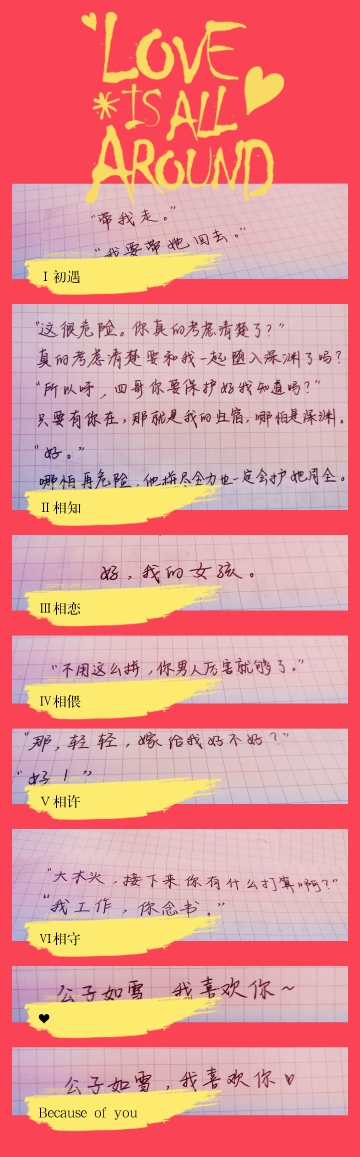 LOVE
IS ALL
AROUND
“带我走。”
“我要带她回去。”
Ⅰ初遇
“这很危险。你真的考虑清楚了？”
真的考虑清楚要和我一起堕入深渊了吗？
“所以呀，四哥你要保护好我知道吗？”
只要有你在，那就是我的归宿，哪怕是深渊。
“好。”
哪怕再危险，他拼尽全力也一定会护她周全。
Ⅱ相知
好，我的女孩。
Ⅲ相恋
“不用这么拼，你男人厉害就够了。”
Ⅳ相偎
“那，轻轻，嫁给我好不好？”
“好！”
Ⅴ相许
“大木头，接下来你有什么打算啊？”
“我工作，你念书。”
Ⅵ相守
公子如雪，我喜欢你～
♥
公子如雪，我喜欢你♡
Because of you